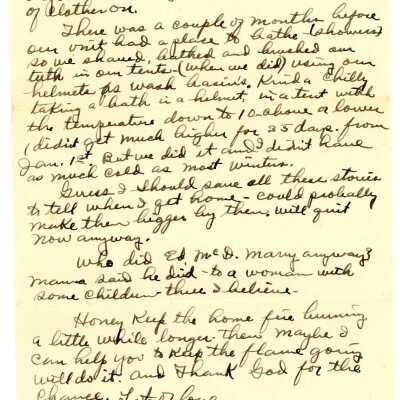 of clothes on.
There was a couple of months before
our unit had a place to bathe - (showers)
so we shaved, bathed and brushed our
teeth in our tents - (when we did) using our
helmets as wash basins. Kinda chilly
taking a bath in a helmet, in a tent with
the temperature down to 10 above or lower
(didn't get much higher for 25 days from
Jan. 1st. But we did it and I didn't have
as much cold as most winters.
Guess I should save all these stories
to tell when I get home - could probably
make them bigger by then, will quit
now anyway.
Who did Ed. McD. marry anyway?
Mama said he did - to a woman with
some children - three I believe.
Honey Keep the home fire burning
a little while longer. Then maybe I
can help you to keep the flame going
will do it. and Thank God for the
chance.